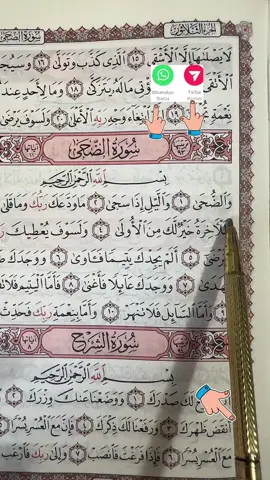 سورة الضحى
الجزء الثلاثون
لا يصلىها إلا الأشقى ١٥ الذي كذب وتولى ١٦ وسيجن
الأتقى
WhatsApp Status
Turbo
تي ماله يتزكى ١٨ وما لأحد عند
نعمة
تغاء وجه ربه الأعلى ٢٠ ولسوف يرضى
سورة الضحى
بسم الله الرحمن الرحيم
والضحى ١ والليل إذا سجى ٢ ما ودعك ربك وما قلى
وللآخرة خير لك من الأولى ٤ ولسوف يعطيك
٥ ألم يجدك يتيما فآوى ٦ ووجدك
٧ ووجدك عائلا فأغنى ٨ فأما اليتيم فلا
٩ وأما السائل فلا تنهر ١٠ وأما بنعمة ربك فحدث
سورة الشرح
بسم الله الرحمن الرحيم
لك صدرك ١ ووضعنا عنك وزرك ٢
أنقض ظهرك ٣ ورفعنا لك ذكرك ٤ فإن مع العسر يسرا
مع العسر يسرا ٦ فإذا فرغت فانصب ٧ وإلى ربك فارغب